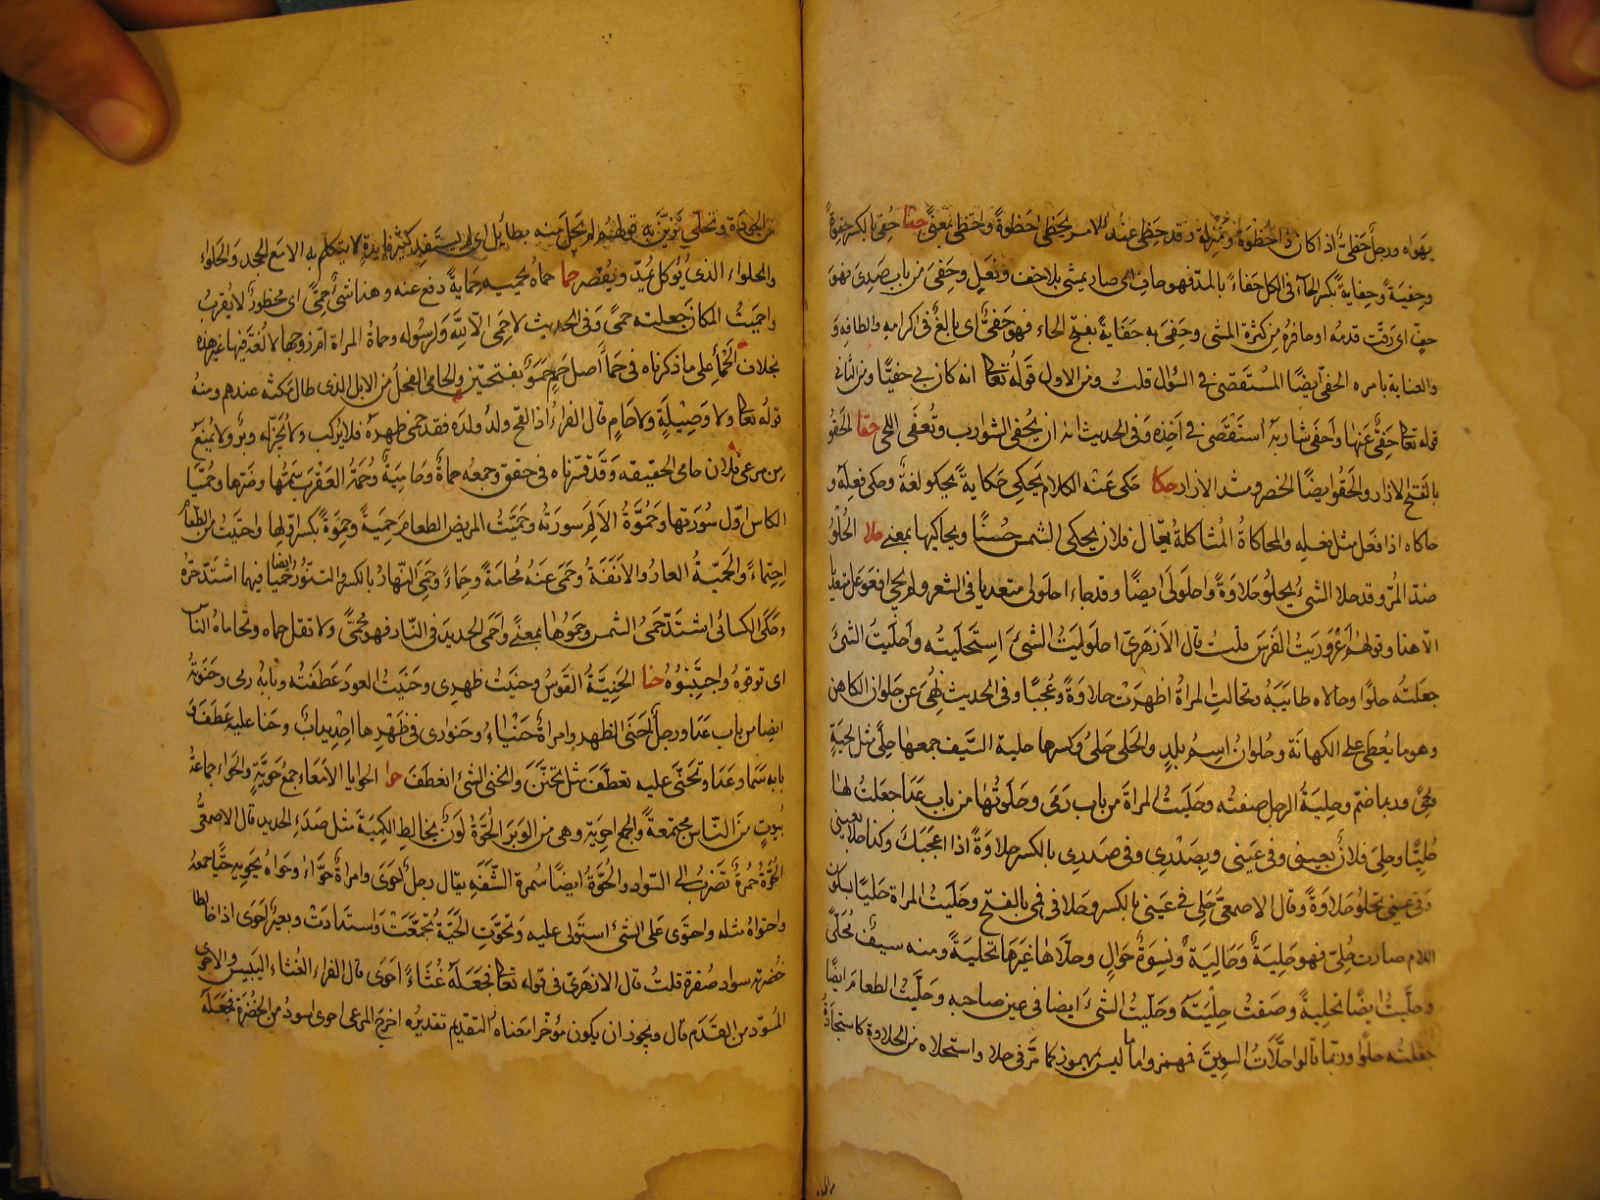 يهواه ورجل حظي اذا كان ذا حظوة ومنزلة وقد حظي عند الامير يحظى حظوة واحتظى بمعنى حفا حفي بالكسر حفوة
وحفية وحفاية بكسر الحاء في الكل حفاء بالمد فهو حاف اى صار يمشى بلا خف ونعل وحفى من باب صدى فهو
حف اى رقت قدمه او حافره من كثرة المشى وحفى به حفاية بفتح الحاء فهو حفي اى بالغ في اكرامه والطافه و
والعناية بامره الحفي ايضا المستقصى في السؤل قلت ومن الاول قوله تعالى انه كان بي حفيا ومن الثاني
قوله تعالى حفي عنها واحفى شاربه استقصى في اخذه وفي الحديث انه ان يحفى الشوارب وتعفى اللحى حقا الحقو
بالفتح الازار والحقو ايضا الخصر ومشد الازار حكا حكى عنه الكلام يحكى حكاية يحكو لغة وحكى فعله و
حاكاه اذا فعل مثل فعله والمحاكاة المشاكلة يقال فلان يحكى الشمس حسنا ويحاكيها بمعنى حلا الحلو
ضد المر وقد حلا الشئ يحلو حلاوة واحلولى ايضا وقد جاء احلولى متعديا في الشعر ولم يجى افعوعل متعديا
الا هنا وقولهم اعروريت الفرس قلت قال الازهرى احلوليت الشئ استحليته واحليت الشئ
جعلته حلوا وحالاه طايبه وتحالت المراة اظهرت حلاوة وعجبا وفي الحديث نهى عن حلوان الكاهن
وهو ما يعطى على الكهانة وحلوان اسم بلد والحلى حلى وكسرها حلية السيف جمعها حلى مثل لحية
ولحى وربما ضم وحلية الرجل صفته وحليت المراة من باب رمى وحلوتها من باب عدا جعلت لها
حليا وحلى فلان بعينى وفي عينى وبصدرى وفي صدرى بالكسر حلاوة اذا اعجبك وكذا حلا بعينى
وفي عينى تحلو حلاوة وقال الاصمعى حلى في عينى بالكسر وحلا في فمى بالفتح وحليت المراة حليا بسكون
اللام صارت حلى فهو حلية وحالية ونسوة حوال وحلاها غيرها تحلية ومنه سيف محلى
وحليت ايضا تحلية وصفت حليته وحليت الشئ ايضا في عين صاحبه وحليت الطعام ايضا
جعلته حلوا وربما قالوا حلأت السويق فهمزوا ما ليس بمهموز كما مر في حلا واستحلاه من الحلاوة كاستجاده
من الجودة وتحلى تزين به قولهم لم يحل منه بطائل اى لم يستفد كثير فايدة لا يتكلم به الا مع الجحد والحلواء
والحلواء الذى يؤكل يمد ويقصر حما حماه يحميه حماية دفع عنه وهذا شئ حمى اى محظور لا يقرب
واحميت المكان جعلته حمى وفي الحديث لا حمى الا لله ولرسوله وحماة المراة ام زوجها لا لغة فيها غير هذه
بخلاف الحمأ على ما ذكرناه في حما اصل حم حمو بفتحتين والحامى الفحل من الابل الذى طال مكثه عندهم ومنه
قوله تعالى ولا وصيلة ولا حام قال الفراء اذا القح ولد ولده فقد حمى ظهره فلا يركب ولا يجز له وبر ولا يمنع
من مرعى فلان حامى الحقيقه وقد فسرناه في حقق وجمعه حماة وحامية وحمة العقرب سمها وضرها وحميا
الكاس اول سورتها وحموة الالم سورته وحميت المريض الطعام حمية وحموة بكسر اولها واحتميت من الطعام
احتماء والحمية العار والانفة وحمى عنه محامة وحماء وحمى النهار بالكسر والتنور حميا ايضا فيهما اشتد حره
وحكى الكسائى اشتد حمى الشمس وحموها بمعنى واحمى الحديد في النار فهو محمى ولا تقل حماه وتحاماه الناس
اى توقوه واجتنبوه حنا الحنية القوس وحنيت ظهرى وحنيت العود عطفته وبابه رمى وحنوته
ايضا من باب عدا ورجل احنى الظهر وامراة حنياء وحنواء اى في ظهرها احديداب وحنا عليه عطف
بابه سما وعدا وتحنى عليه تعطف مثل تحنن وانحنى الشئ انعطف حوا الحوايا الامعاء جمع حوية والحواء جماعة
بيوت من الناس مجتمعة والجمع احوية وهى من الوبر الحوة لون يخالطه الكمتة مثل صدء الحديد قال الاصمعى
الحوة حمرة تضرب الى السواد والحوة ايضا سمرة الشفة يقال رجل احوى وامراة حواء وحواه يحويه حيا جمعه
واحتواه مثله واحتوى على الشئ استولى عليه وتحوت الحية تجمعت واستدارت وبعير احوى اذا خالط
خضرته سواد صفرة قلت قال الازهرى في قوله تعالى فجعله غثاء احوى قال الفراء الغثاء اليبيس والاحوى
المسود من القدم قال ويجوز ان يكون مؤخرا معناه التقديم تقديره اخرج المرعى احوى اسود من الخضرة فجعله